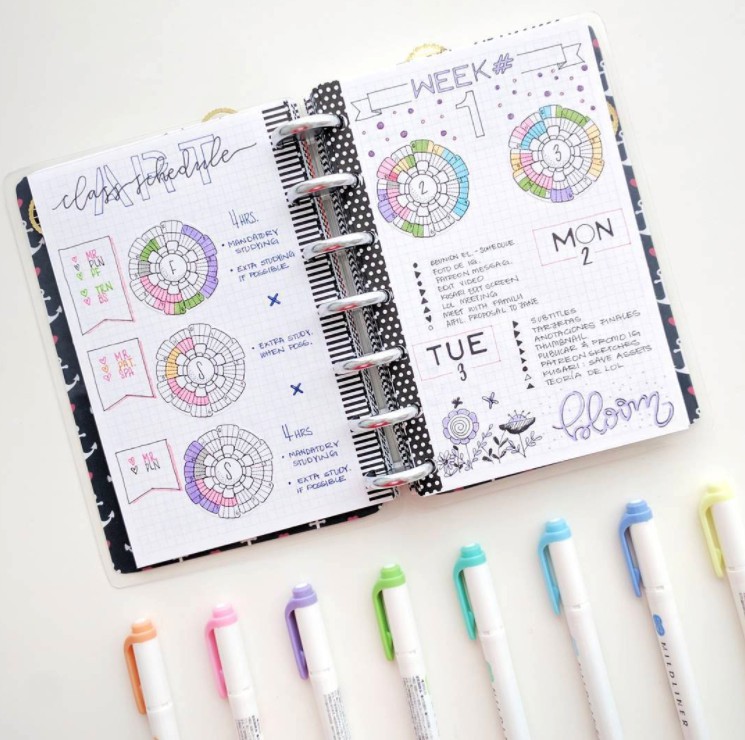 ART
class schedule
MR.
PLN
EF
TEN
F
4 HRS.
• MANDATORY
STUDYING
• EXTA STUDYING
IF POSSIBLE
MR.
PAT.
S
• EXTRA STUDY.
WHEN POSS.
MR.
PLN
S
4 HRS
• MANDATORY
STUDYING
• EXTRA STUDY.
IF POSSIBLE
WEEK #
1
2
3
MON
2
FOTO DE IG.
PATREON MESSAGE.
EDIT VIDEO
END SCREEN
LOL MEETING
MEET WITH FAMILII
PROPOSAL TO JANE
TUE
3
SUBTITLES
TARJETAS
ANOTACIONES FINALES
THUMBNAIL
PUBLICAR & PROMO IG
PATREON SKETCHES
KUSARI: SAVE ASSETS
TEORIA DE LOL
bloom
MILDLINER